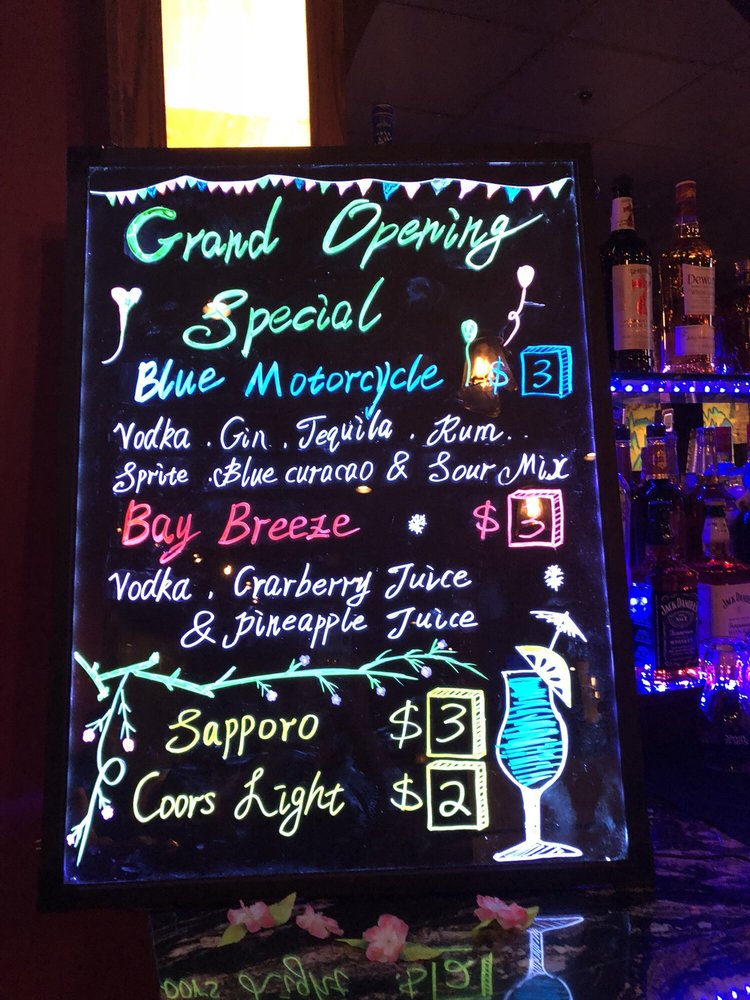 Grand Opening
Special
Blue Motorcycle $ 3
Vodka . Gin . Tequila . Rum..
Sprite . Blue curacao & Sour Mix
Bay Breeze $ 3
Vodka . Crarberry Juice
& pineapple Juice
Sapporo $ 3
Coors Light $ 2
Dewar's
JACK DANIEL'S
JACK DANIEL'S